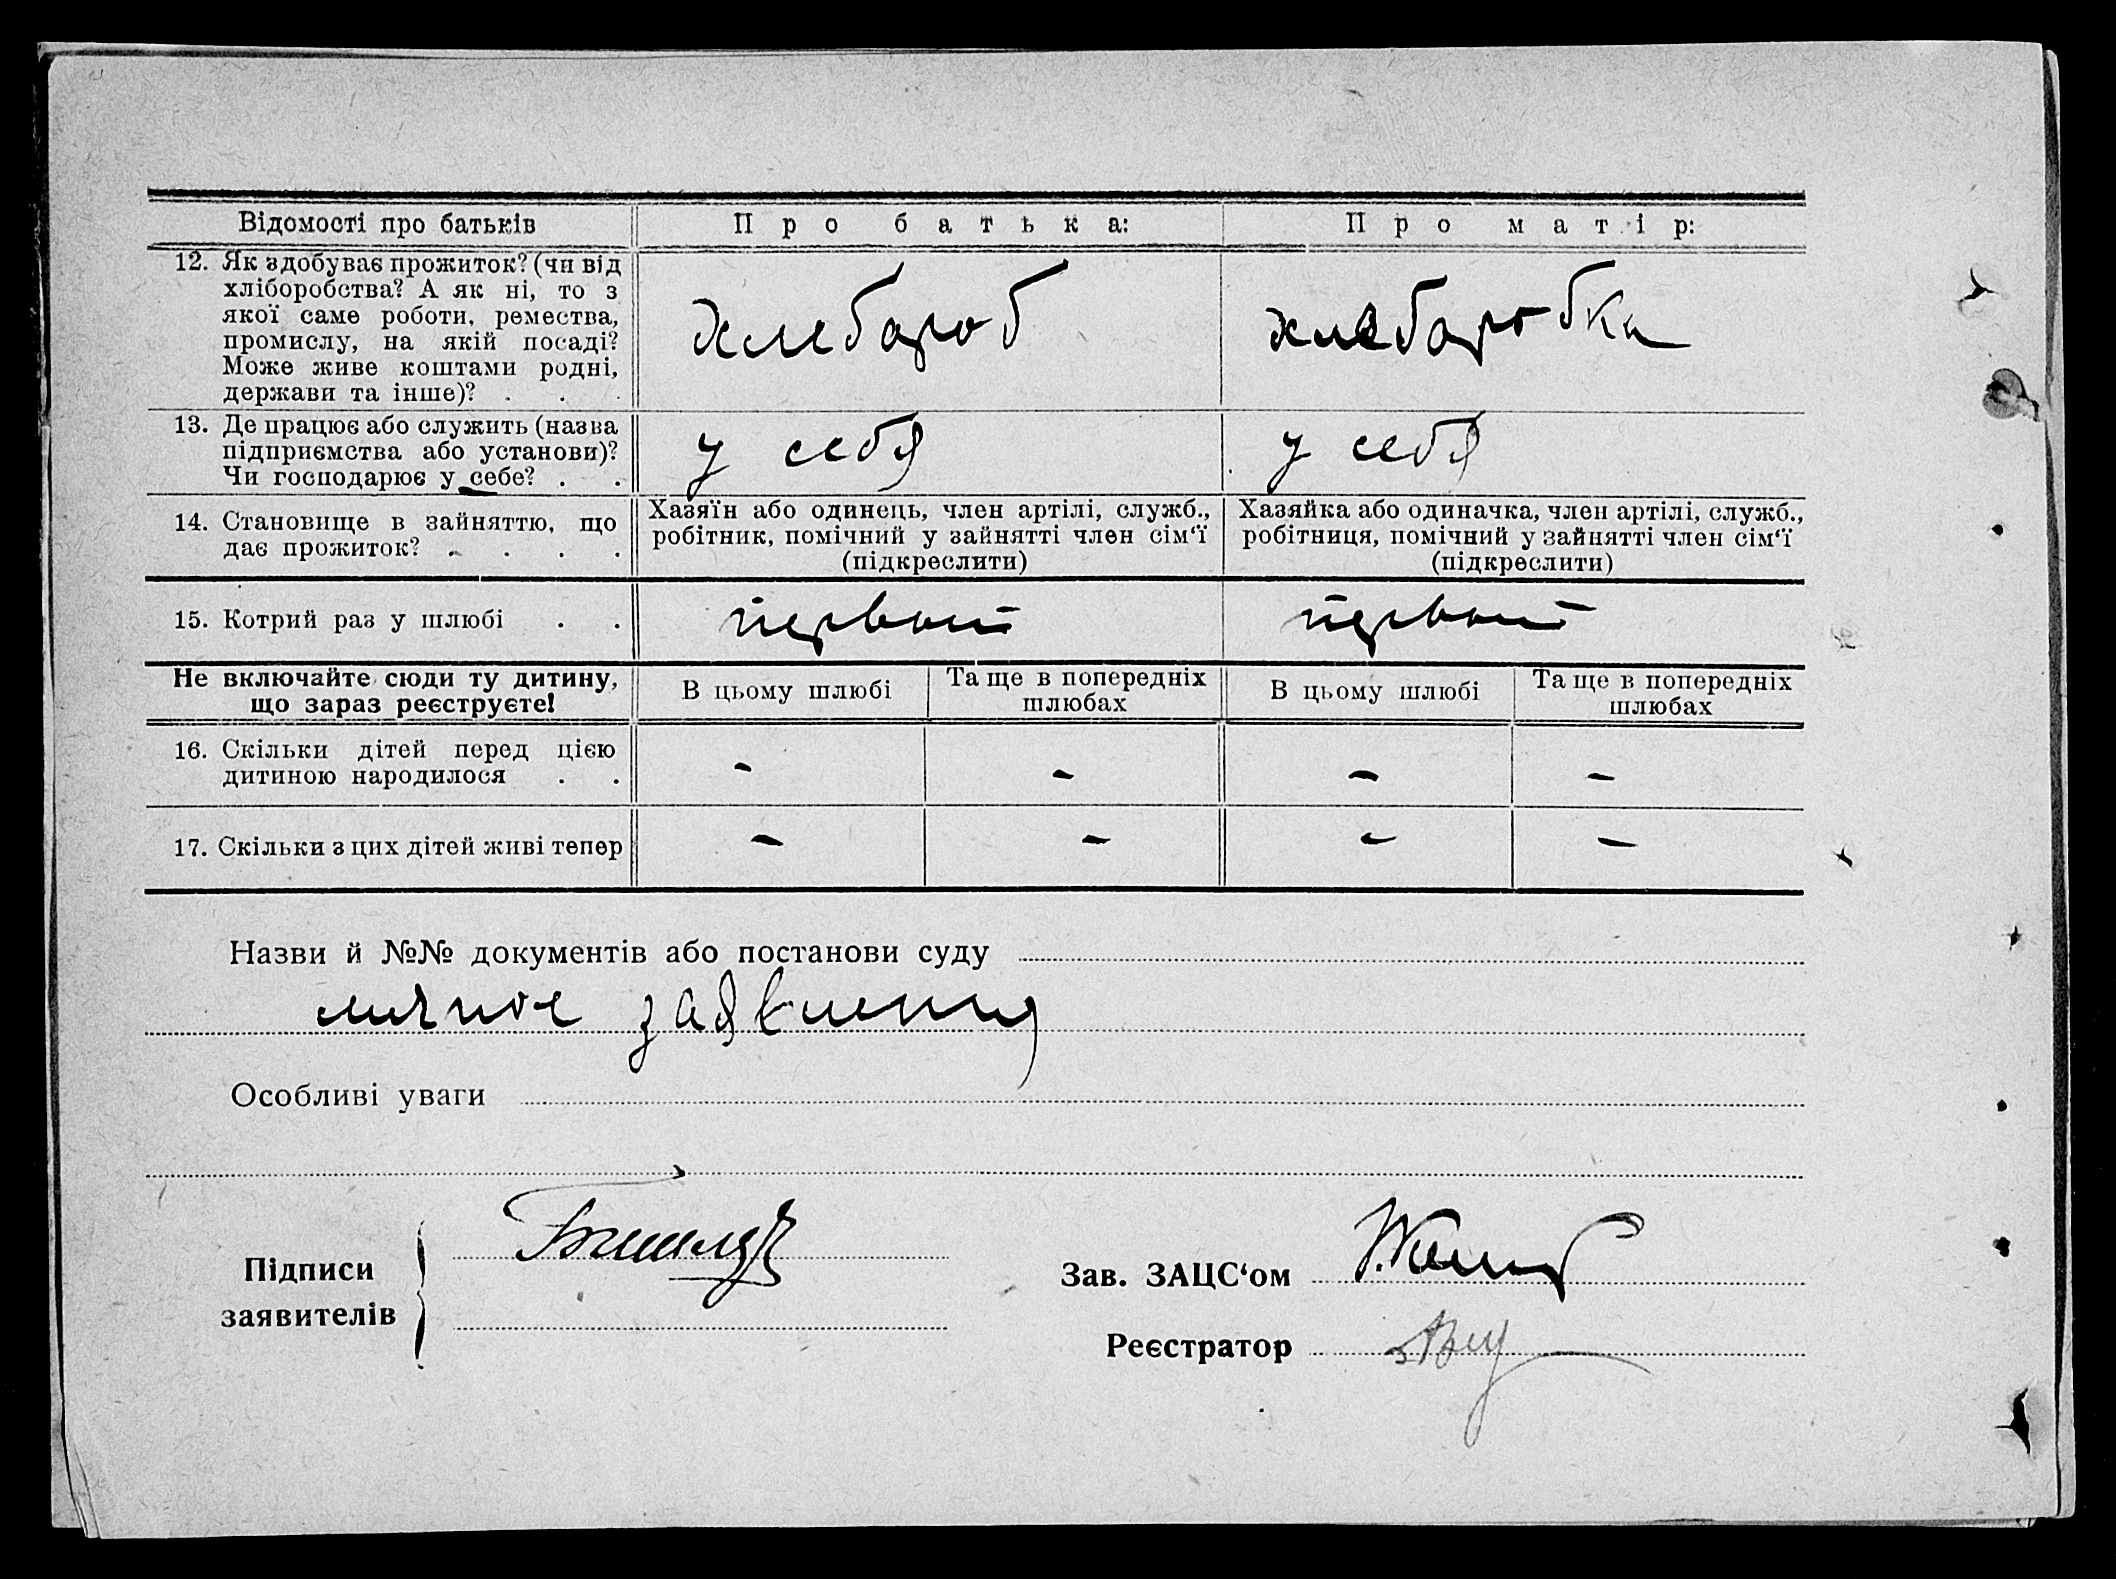 Відомості про батьків	Про батька:	Про матір:
12. Як здобуває прожиток? (чи від
хліборобства? А як ні, то з
якої саме роботи, ремества,
промислу, на якій посаді?
Може живе коштами родні,
держави та інше)? . .
хлебороб	хлеборобка
13. Де працює або служить (назва
підприємства або установи)?
Чи господарює у себе? . .
у себя	у себя
14. Становище в зайняттю, що
дає прожиток? . . . .
Хазяїн або одинець, член артілі, служб.,
робітник, помічний у зайнятті член сім‘ї
(підкреслити)
Хазяйка або одиначка, член артілі, служб.,
робітниця, помічний у зайнятті член сім‘ї
(підкреслити)
15. Котрий раз у шлюбі . .	первый	первый
Не включайте сюди ту дитину,
що зараз реєструєте!
В цьому шлюбі	Та ще в попередніх
шлюбах
В цьому шлюбі	Та ще в попередніх
шлюбах
16. Скільки дітей перед цією
дитиною народилося . .
-	-	-	-
17. Скільки з цих дітей живі тепер	-	-	-	-
Назви й №№ документів або постанови суду
личное заявления
Особливі уваги
Підписи
заявителів
Зав. ЗАЦС‘ом
Реєстратор